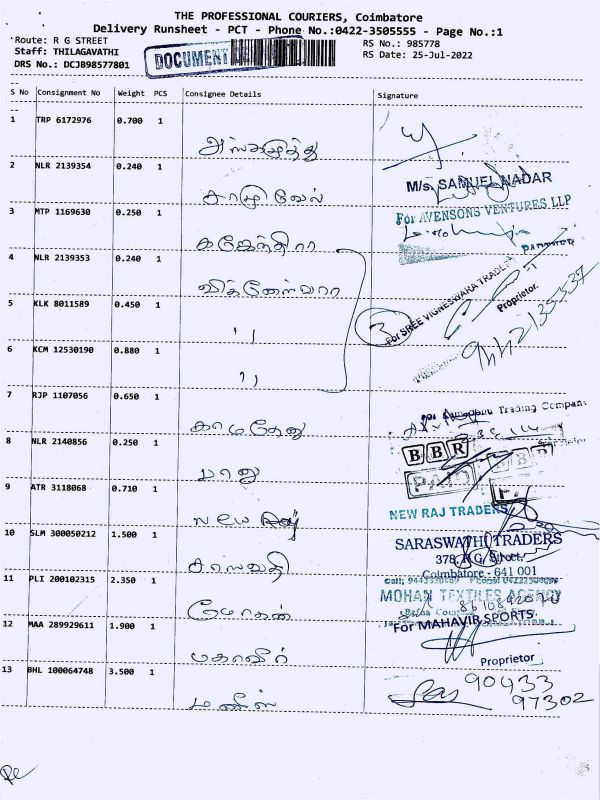 THE PROFESSIONAL COURIERS, Coimbatore
Delivery Runsheet - PCT - Phone No.:0422-3505555 - Page No.:1
Route: R G STREET RS No.: 985778
Staff: THILAGAVATHI RS Date: 25-Jul-2022
DRS No.: DCJB98577801
DOCUMENT
S No Consignment No Weight PCS Consignee Details Signature
1 TRP 6172976 0.700 1
2 NLR 2139354 0.240 1
M/s. SAMUEL NADAR
சாமுவேல்
3 MTP 1169630 0.250 1
For AVENSONS VENTURES LLP
கஜேந்திரா
4 NLR 2139353 0.240 1
விக்னேஸ்வரா
For SREE VIGNESWARA TRADERS
Proprietor.
3
5 KLK 8011589 0.450 1
"
6 KCM 12530190 0.880 1
"
7 RJP 1107056 0.650 1
Trading Company
காமதேனு
8 NLR 2140856 0.250 1
BBR
PAID
பானு
9 ATR 3118068 0.710 1
NEW RAJ TRADERS
New Raj
10 SLM 300050212 1.500 1
SARASWATHI TRADERS
378, R.G. Street,
Coimbatore - 641 001
சரஸ்வதி
11 PLI 200102315 2.350 1
MOHAN TEXTILES AGENCY
மோகன்
12 MAA 289929611 1.900 1
For MAHAVIR SPORTS
Proprietor
மகாவீர்
13 BHL 100064748 3.500 1
90433
97302
மனிஸ்